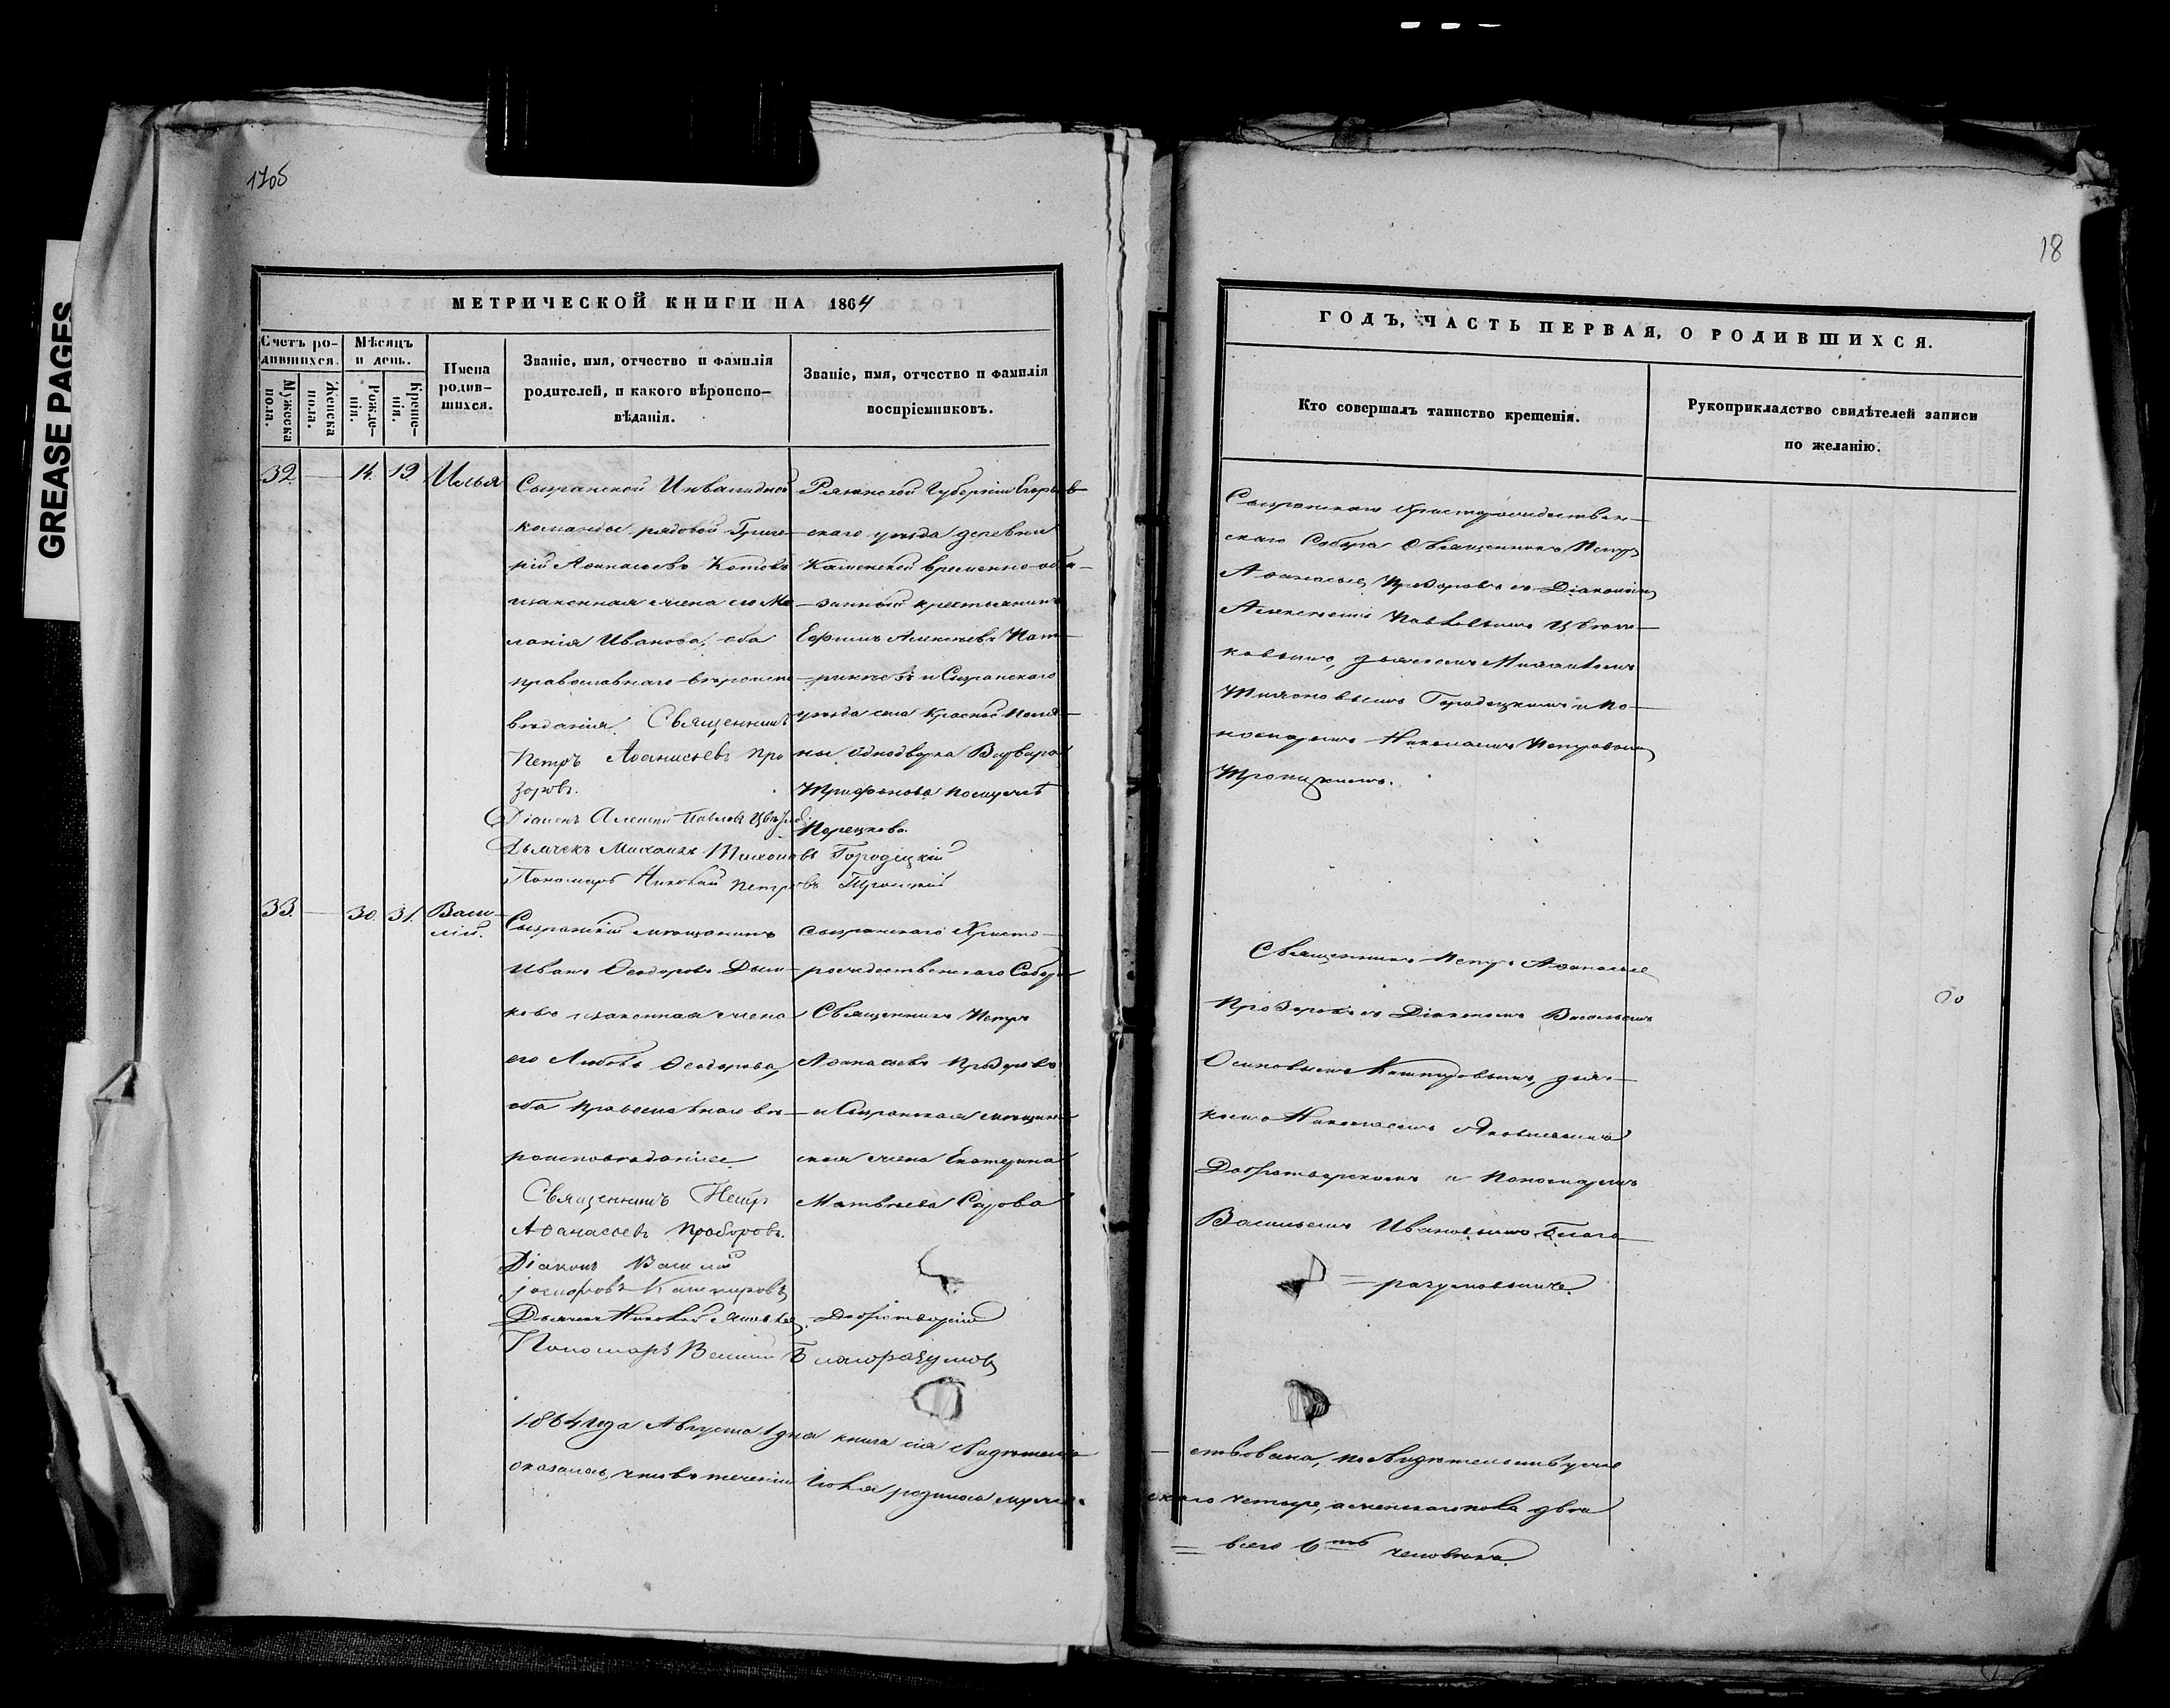 1705
18
GREASE PAGES
МЕТРИЧЕСКОЙ КНИГИ НА 1864
Счетъ ро-
дившихся.
Мѣсяцъ
и день.
Мужеска
пола.
Женска
пола.
Рожде-
нія.
Креще-
нія.
Имена
родив-
шихся.
Званіе, имя, отчество и фамилія
родителей, и какого вѣроиспо-
вѣданія.
Званіе, имя, отчество и фамилія
воспріемниковъ.
32 — 14. 19. Илья
Сызранской Инвалидной
команды рядовой Григо-
рій Аѳанасьевъ Котовъ
законная жена его Ме-
ланія Иванова, оба
православнаго вѣроиспо-
вѣданія. Священникъ
Петръ Аѳанасьевъ Про
зоровъ.
Діаконъ Алексѣй Павловъ
Дьячекъ Михаилъ Тихоновъ Городецкій
Пономарь Николай Петровъ Троицкій
Рязанской Губерніи Егорьев-
скаго уѣзда деревни
Каменской временно-обя-
занный крестьянинъ
Ефимъ Алексѣевъ Пат-
рикѣевъ и Сызранскаго
уѣзда села Красной Поля-
ны однодворка Варвара
Трифонова
33. — 30. 31. Васи-
лій.
Сызранскій мѣщанинъ
Иванъ Ѳеодоровъ
ковъ законная жена
его Любовь Ѳеодорова,
оба православнаго вѣ-
роисповѣданія.
Священникъ Петръ
Аѳанасьевъ Прозоровъ.
Діаконъ Василій
Іосифовъ Кашпировъ
Дьячекъ Николай Яковлев Добротворскій
Пономарь Василій Благоразумовъ
Сызранскаго Христо-
рождественскаго Собора
Священникъ Петръ
Аѳанасьевъ Прозоровъ
и Сызранская мѣщан-
ская жена Екатерина
Матвѣева Сарова
1864 года Августа 1 дня книга сія свидѣтель-
оказалось, что въ теченіи Іюля родилось мужес-
ГОДЪ, ЧАСТЬ ПЕРВАЯ, О РОДИВШИХСЯ.
Кто совершалъ таинство крещенія.
Рукоприкладство свидѣтелей записи
по желанію.
Сызранскаго Христорождествен-
скаго Собора Священникъ Петръ
Аѳанасьевъ Прозоровъ съ Діакономъ
Алексѣемъ Павловымъ Цвѣт-
ковымъ, дьячкомъ Михаиломъ
Тихоновымъ Городецкимъ и По-
номаремъ Николаемъ Петровымъ
Троицкимъ.
Священникъ Петръ Аѳанасьев
Прозоровъ съ Діакономъ Васильемъ
Осиповымъ Кашпировымъ, дьяч-
комъ Николаемъ Яковлевымъ
Добротворскимъ и Пономаремъ
Васильемъ Ивановымъ Благо-
= разумовымъ.
ствована, по свидѣтельству же
скаго четыре, а женскаго пола два
= всего 6ть человѣкъ.